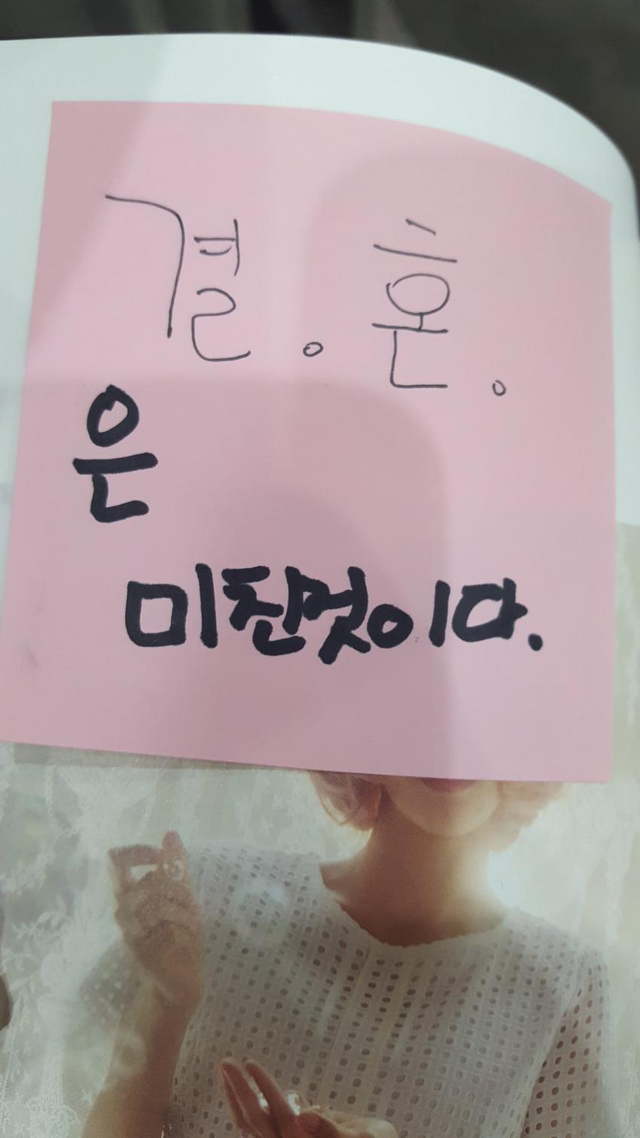 결. 혼.
은
미친멋이다.